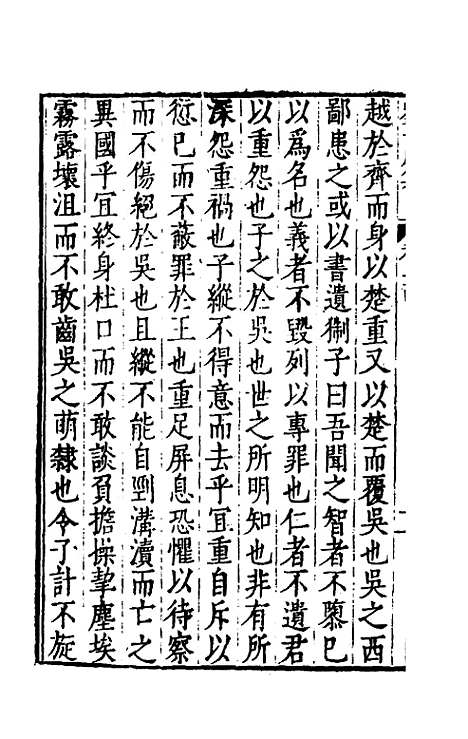 越於齊而身以楚重又以楚而覆吳也吳之西
鄙患之或以書遺御子曰吾聞之智者不隳已
以爲名也義者不毀列以專罪也仁者不遺君
以重怨也子之於吳也世之所明知也非有所
深怨重禍也子縱不得意而去乎宜重自斥以
愆已而不蔽罪於王也重足屏息恐懼以待察
而不傷絕於吳也且縱不能自剄溝瀆而亡之
異國乎宜終身杜口而不敢談負擔操挚塵埃
霧露壞沮而不敢齒吳之萌隸也今子計不旋